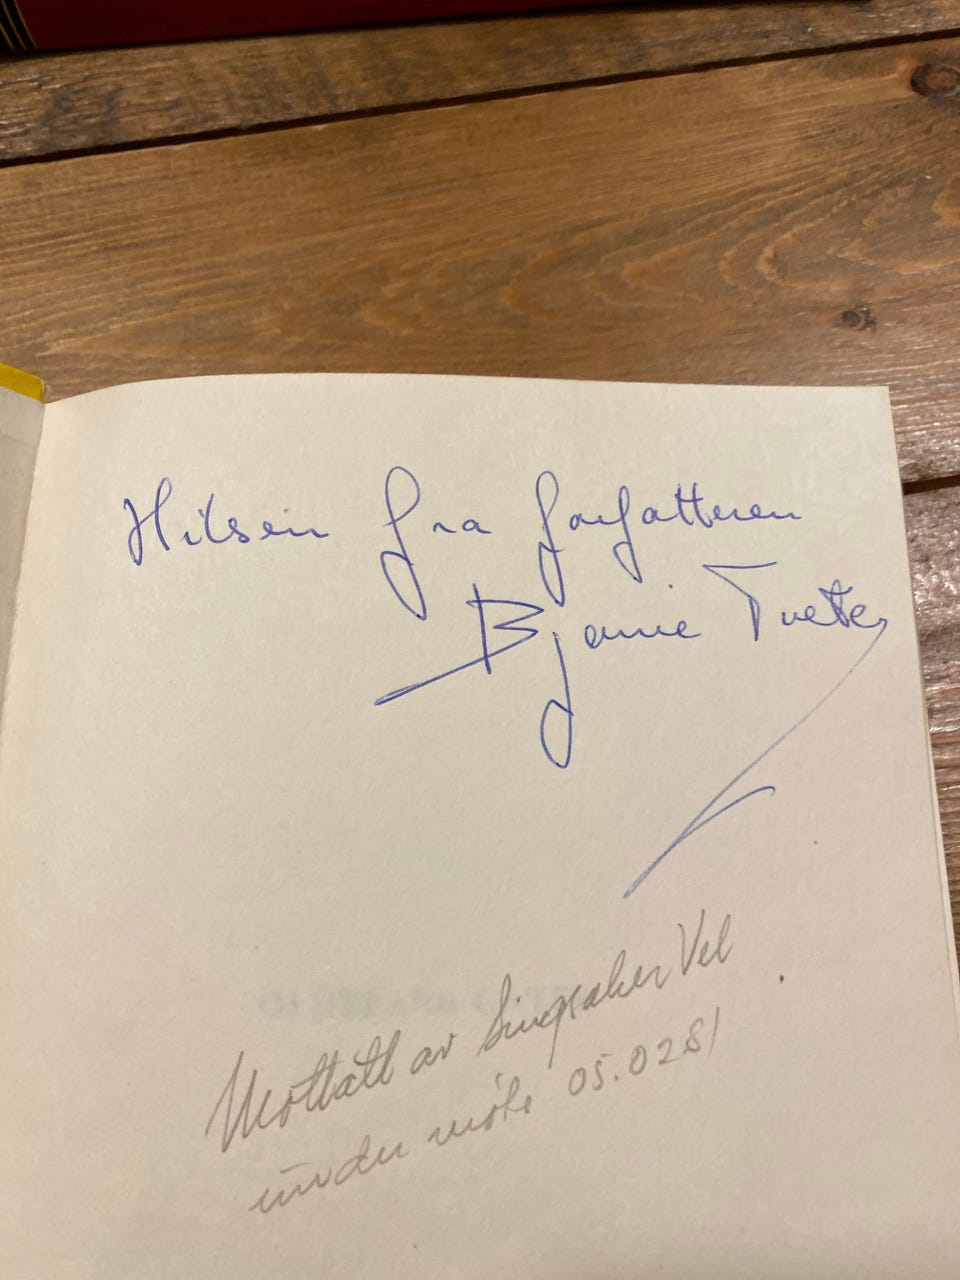 Hilsen fra forfatteren
Bjarne Tvete
Mottatt av Singsaker Vel
under møte 05.0281